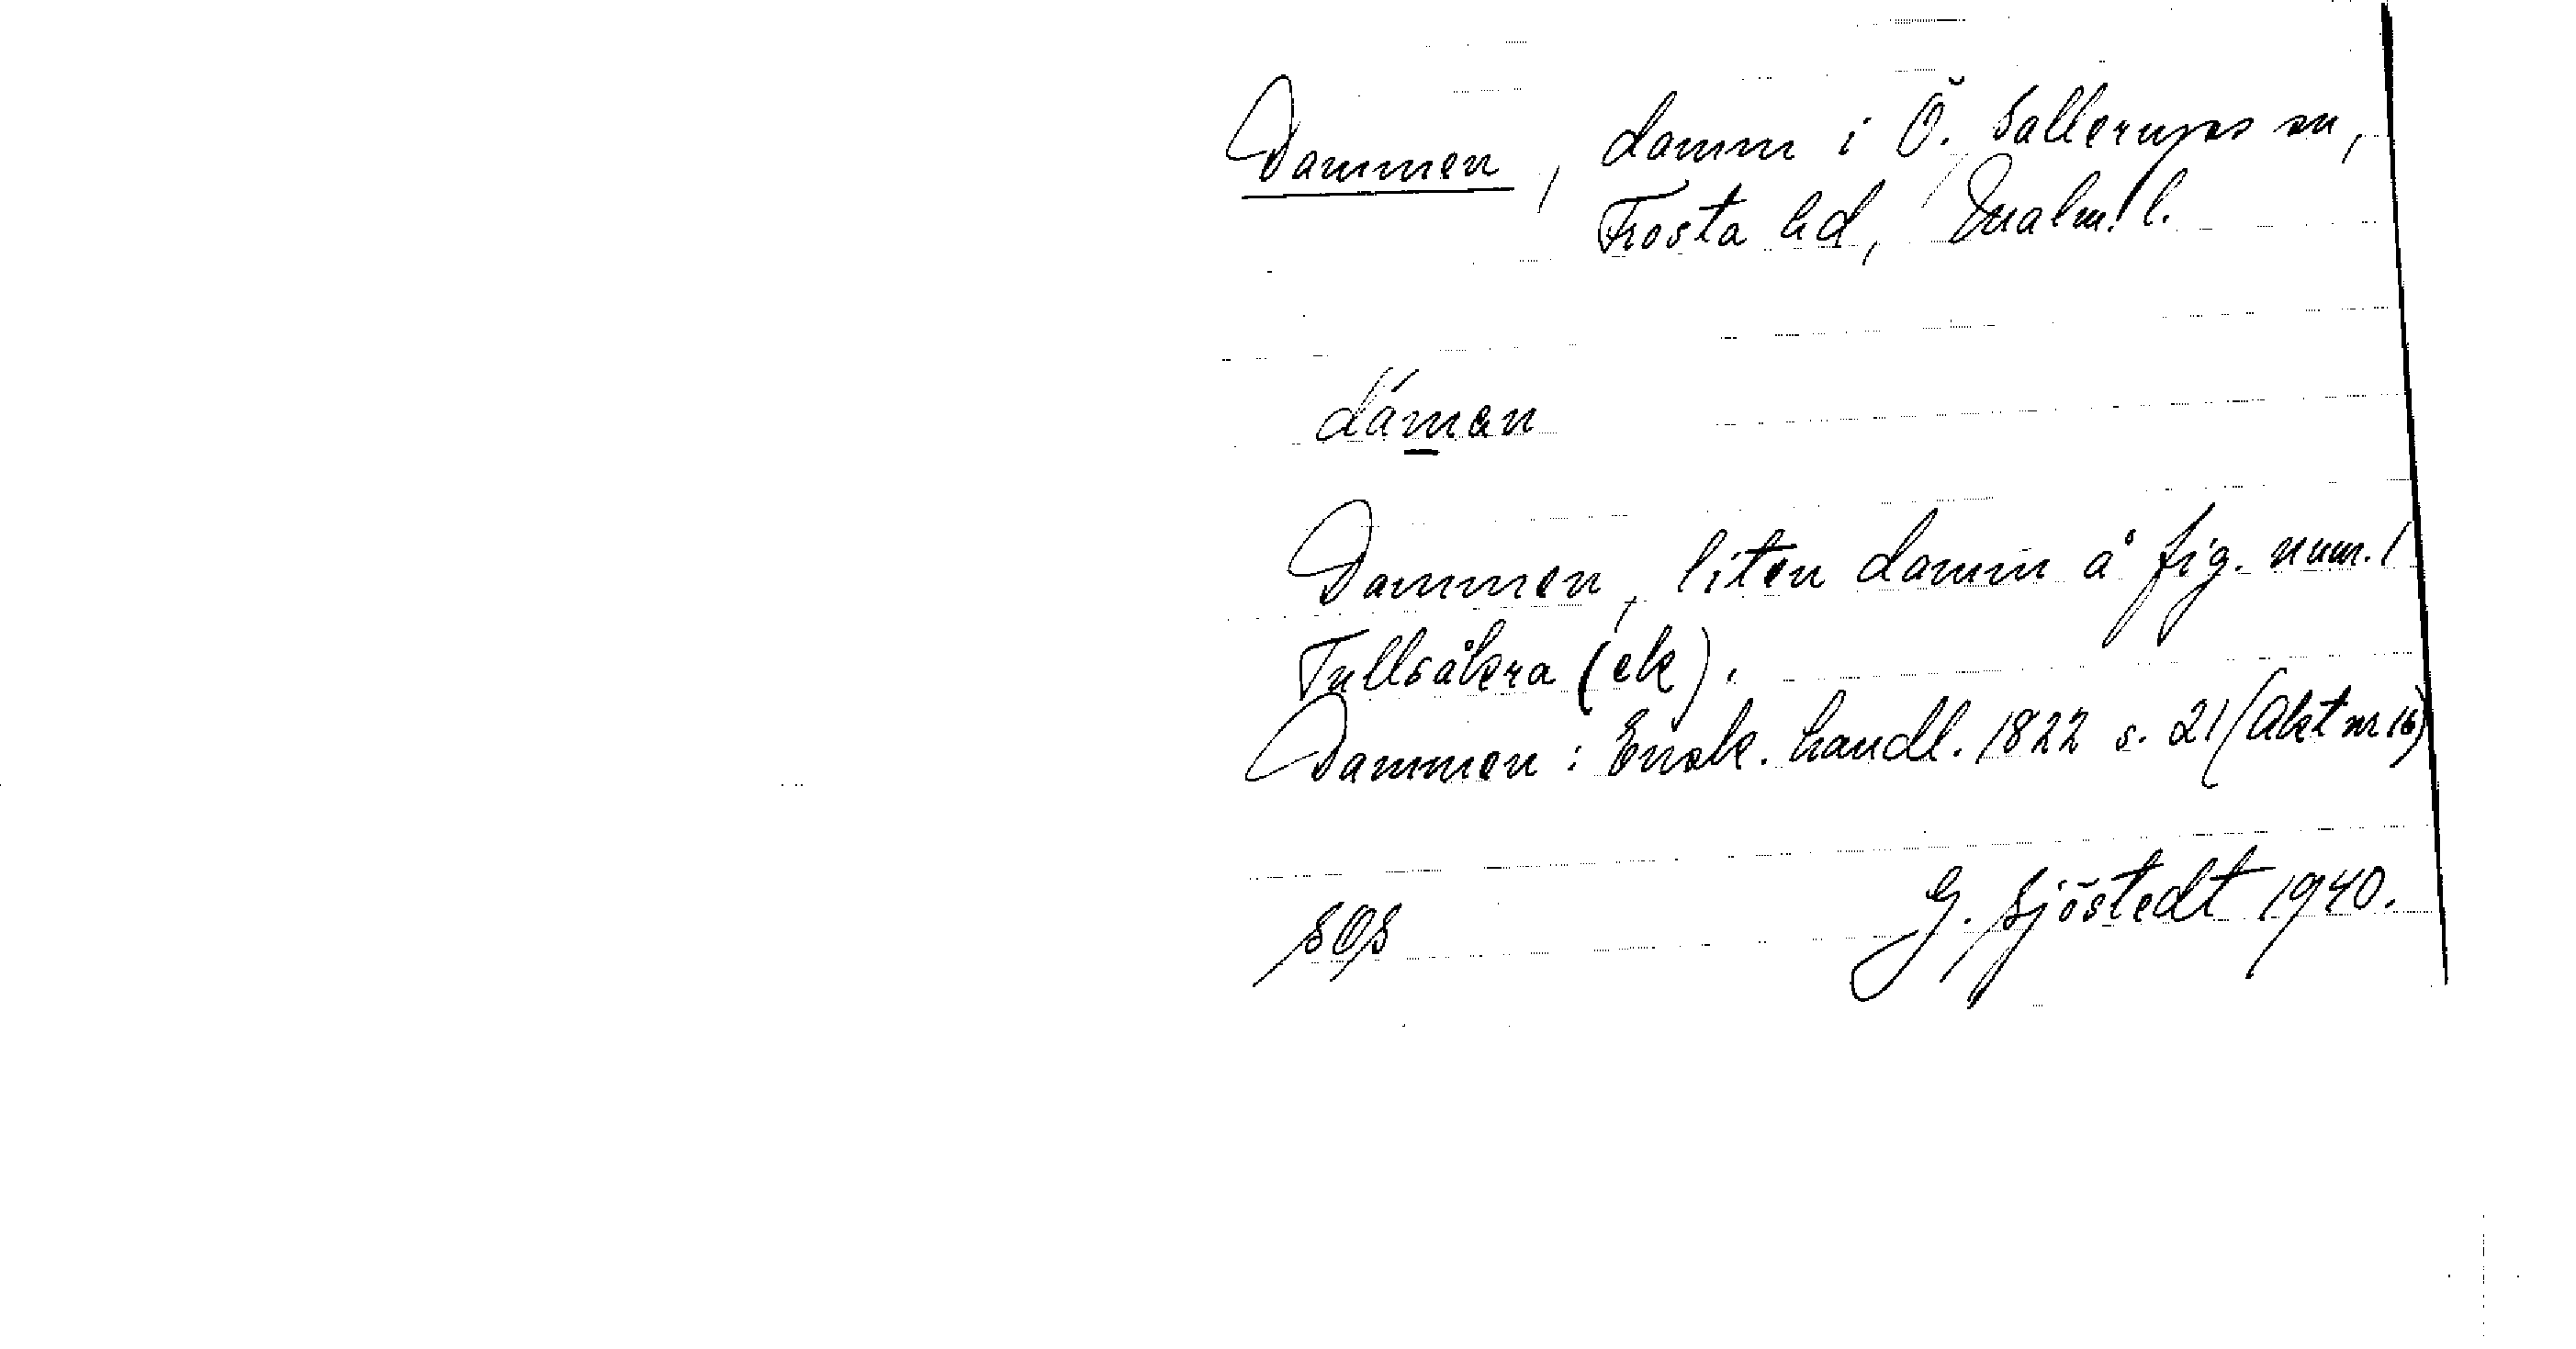 Dammen, damm i Ö. Sallerups sn,
Frosta hd, Malm. l.
dámen
Dammen, liten damm å fig. num. 1
Tullsåkra (ek).
Dammen: Ensk. handl. 1822 s. 21 (Akt nr 16)
SOS G. Sjöstedt 1940.